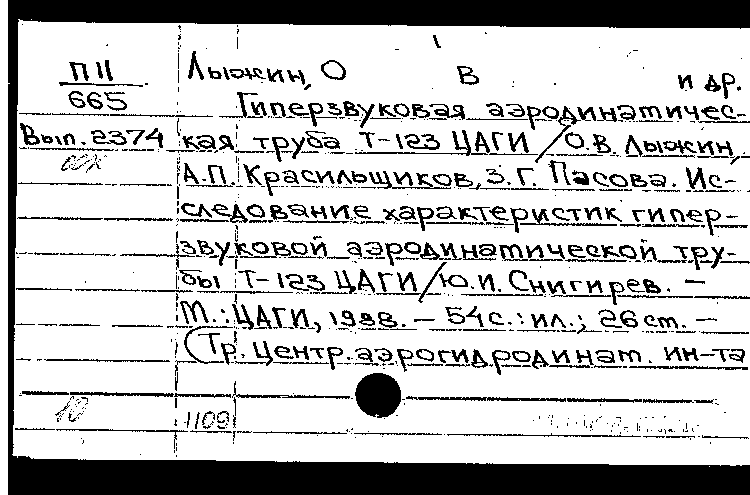 П II
665
Вып. 2374
Лыжин, О В и др.
Гиперзвуковая аэродинатичес-
кая труба Т-123 ЦАГИ / О.В. Лыжин,
А.П. Красильщиков, З.Г. Пасова. Ис-
следование характеристик гипер-
звуковой аэродинатической тру-
бы Т-123 ЦАГИ / Ю.И. Снигирев. —
М.: ЦАГИ, 1988. — 54 с.: ил.; 26 cm. —
(Тр. Центр. аэрогидродинат. ин-та
10
1109